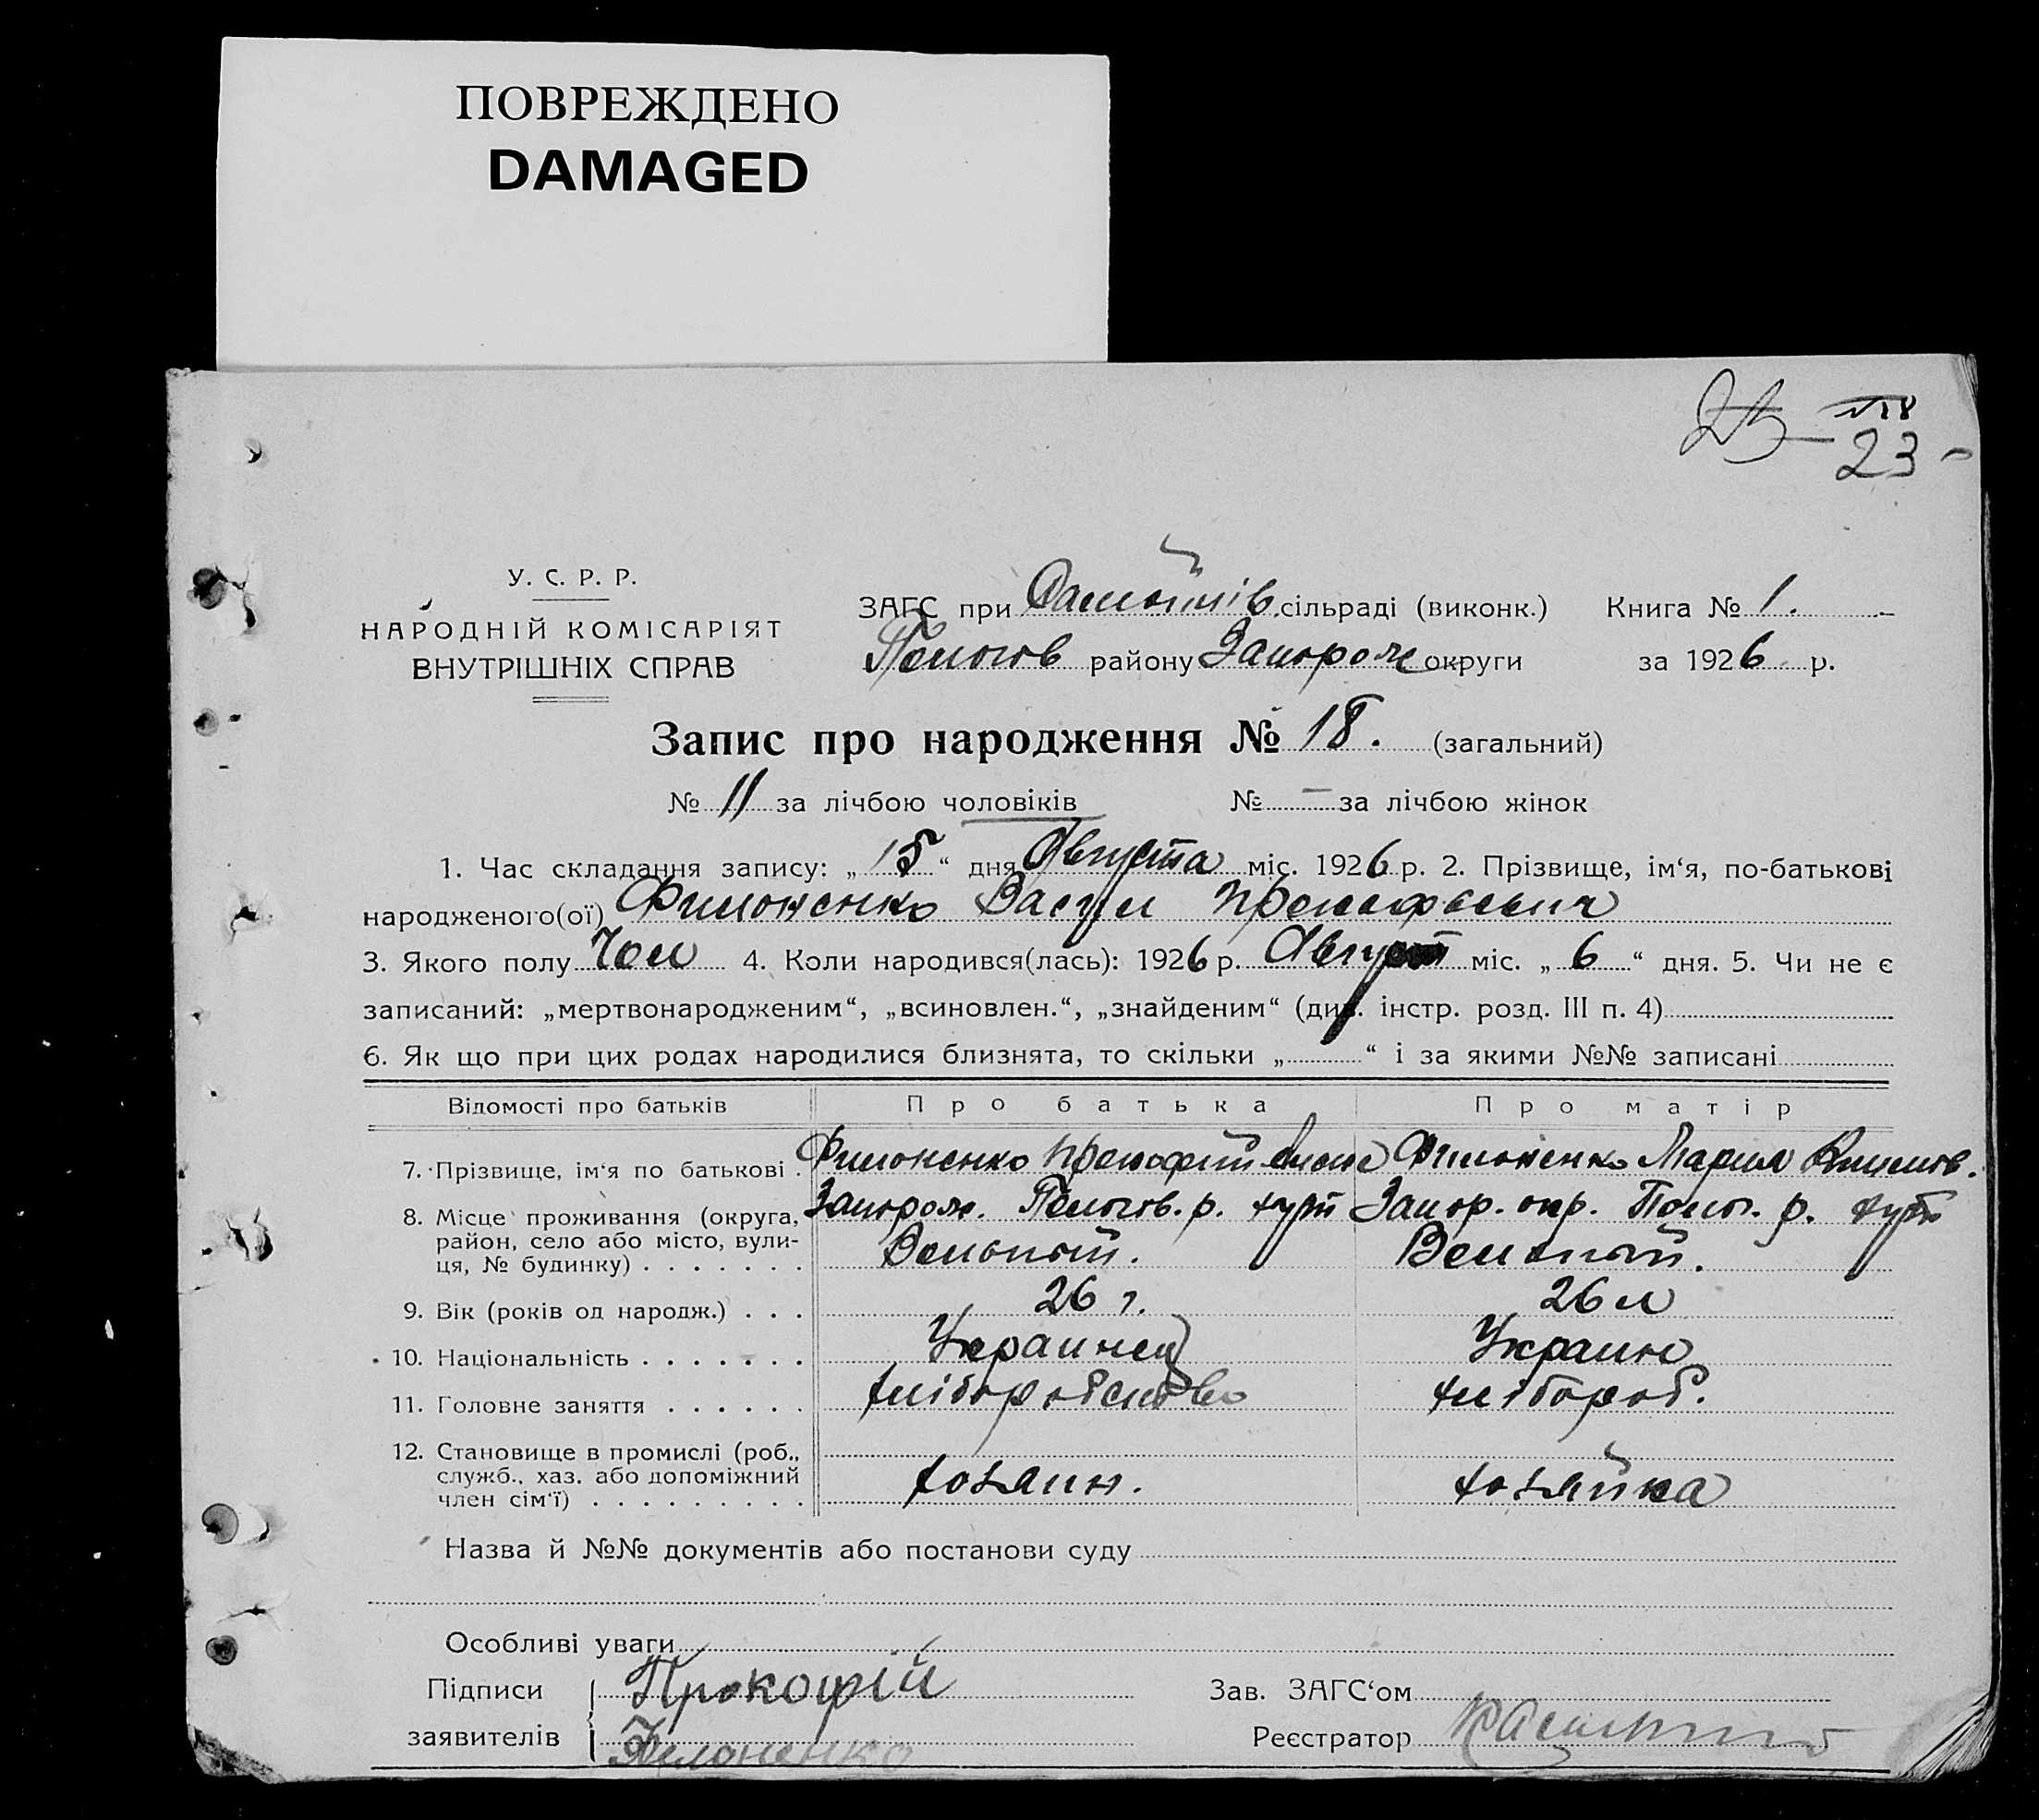 ПОВРЕЖДЕНО
DAMAGED
№18
23
У. С. Р. Р.
НАРОДНІЙ КОМІСАРІЯТ
ВНУТРІШНІХ СПРАВ
ЗАГС при сільраді (виконк.) Книга № 1.
Пологов району Запорож округи за 1926 р.
Запис про народження № 18. (загальний)
№ 11 за лічбою чоловіків № – за лічбою жінок
1. Час складання запису: „15“ дня Августа міс. 1926 р. 2. Прізвище, ім‘я, по-батькові
народженого(ої) Филоненко Васил Прокофьевич
3. Якого полу Чол 4. Коли народився(лась): 1926 р. Август міс. „6“ дня. 5. Чи не є
записаний: „мертвонародженим“, „всиновлен.“, „знайденим“ (див. інстр. розд. III п. 4)
6. Як що при цих родах народилися близнята, то скільки „ “ і за якими №№ записані
Відомості про батьків Про батька Про матір
7. Прізвище, ім‘я по батькові . Филоненко Прокофий Филоненко Мария
8. Місце проживання (округа, Запорож. Пологов. р. хут Запор. окр. Полог. р. хут
район, село або місто, вули-
ця, № будинку) . . . . . . .
9. Вік (років од народж.) . . . 26 г. 26 л
10. Національність . . . . . . . Украинец Украин
11. Головне заняття . . . . . . хліборобство хлібороб.
12. Становище в промислі (роб.,
служб., хаз. або допоміжний хозяин. хозяйка
член сім‘ї) . . . . . . . . .
Назва й №№ документів або постанови суду
Особливі уваги
Підписи Прокофій Зав. ЗАГС‘ом
заявителів Филоненко Реєстратор